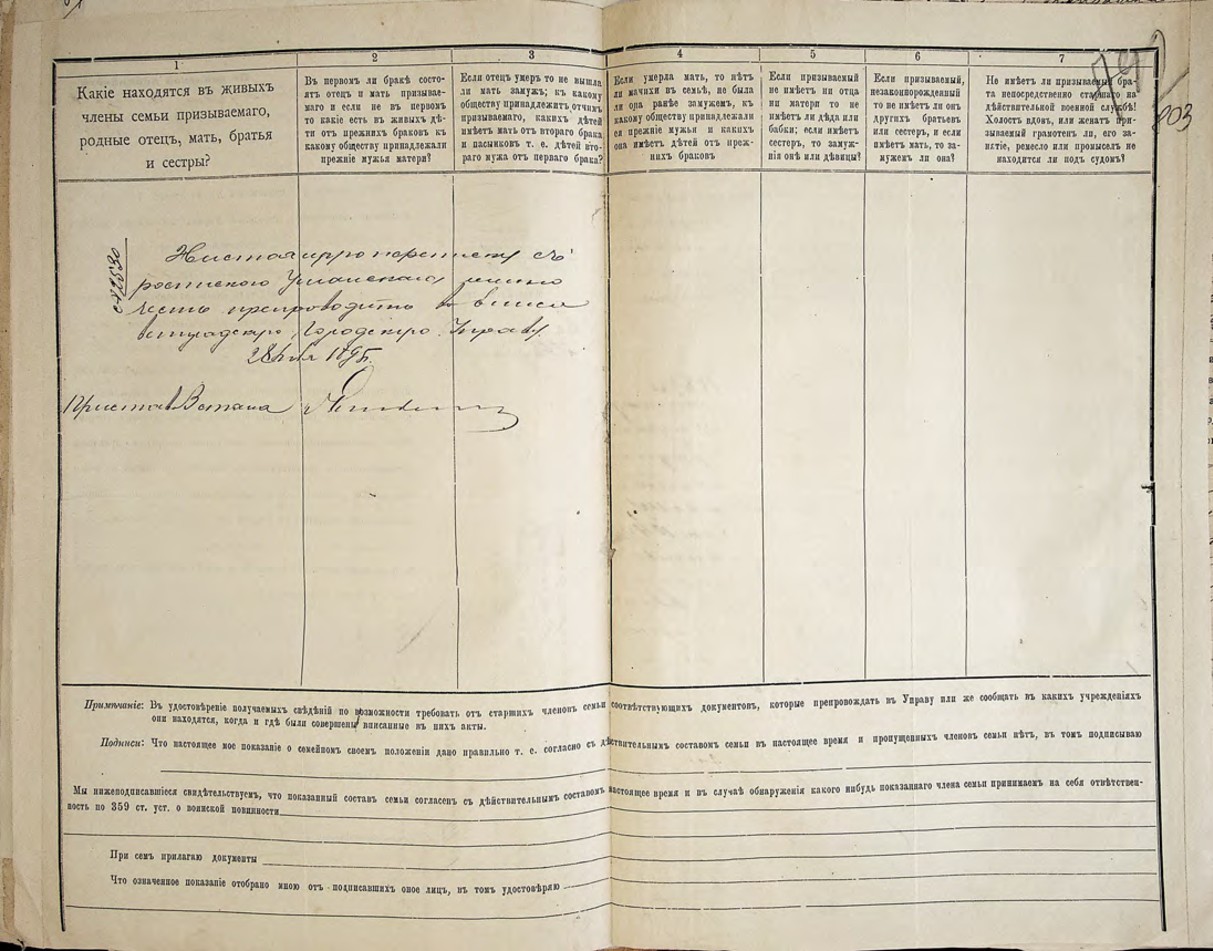 1
2
3
4
5
6
7
Какіе находятся въ живыхъ
члены семьи призываемаго,
родные отецъ, мать, братья
и сестры?
Въ первомъ ли бракѣ состо-
ятъ отецъ и мать призывае-
маго и если не въ первомъ
то какіе есть въ живыхъ дѣ-
ти отъ прежнихъ браковъ къ
какому обществу принадлежали
прежніе мужья матери?
Если отецъ умеръ то не вышла
ли мать замужъ; къ какому
обществу принадлежитъ отчимъ
призываемаго, какихъ дѣтей
имѣетъ мать отъ втораго брака
и пасынковъ т. е. дѣтей вто-
раго мужа отъ перваго брака?
Если умерла мать, то нѣтъ
ли мачихи въ семьѣ, не была
ли она ранѣе замужемъ, къ
какому обществу принадлежали
ея прежніе мужья и какихъ
она имѣетъ дѣтей отъ преж-
нихъ браковъ
Если призываемый
не имѣетъ ни отца
ни матери то не
имѣетъ ли дѣда или
бабки; если имѣетъ
сестеръ, то замуж-
нія онѣ или дѣвицы?
Если призываемый,
незаконнорожденный
то не имѣетъ ли онъ
другихъ братьевъ
или сестеръ, и если
имѣетъ мать, то за-
мужемъ ли она?
Не имѣетъ ли призываемый бра-
та непосредственно старшаго на
дѣйствительной военной службѣ!
Холостъ вдовъ, или женатъ при-
зываемый грамотенъ ли, его за-
нятіе, ремесло или промыселъ не
находится ли подъ судомъ?
803
№ 2530
переписку съ
роспискою
честь препроводить в
Городскую Управу
1895г.
Приставъ
Примѣчаніе: Въ удостовѣреніе получаемыхъ свѣдѣній по возможности требовать отъ старшихъ членовъ семьи соотвѣтствующихъ документовъ, которые препровождать въ Управу или же сообщать въ какихъ учрежденіяхъ
они находятся, когда и гдѣ были совершены вписанные въ нихъ акты.
Подписи: Что настоящее мое показаніе о семейномъ своемъ положеніи дано правильно т. е. согласно съ дѣйствительнымъ составомъ семьи въ настоящее время и пропущенныхъ членовъ семьи нѣтъ, въ томъ подписываю
Мы нижеподписавшіеся свидѣтельствуемъ, что показанный составъ семьи согласенъ съ дѣйствительнымъ составомъ настоящее время и въ случаѣ обнаруженія какого нибудь показаннаго члена семьи принимаемъ на себя отвѣтствен-
ность по 359 ст. уст. о воинской повинности
При семъ прилагаю документы
Что означенное показаніе отобрано мною отъ подписавшихъ оное лицъ, въ томъ удостовѣряю